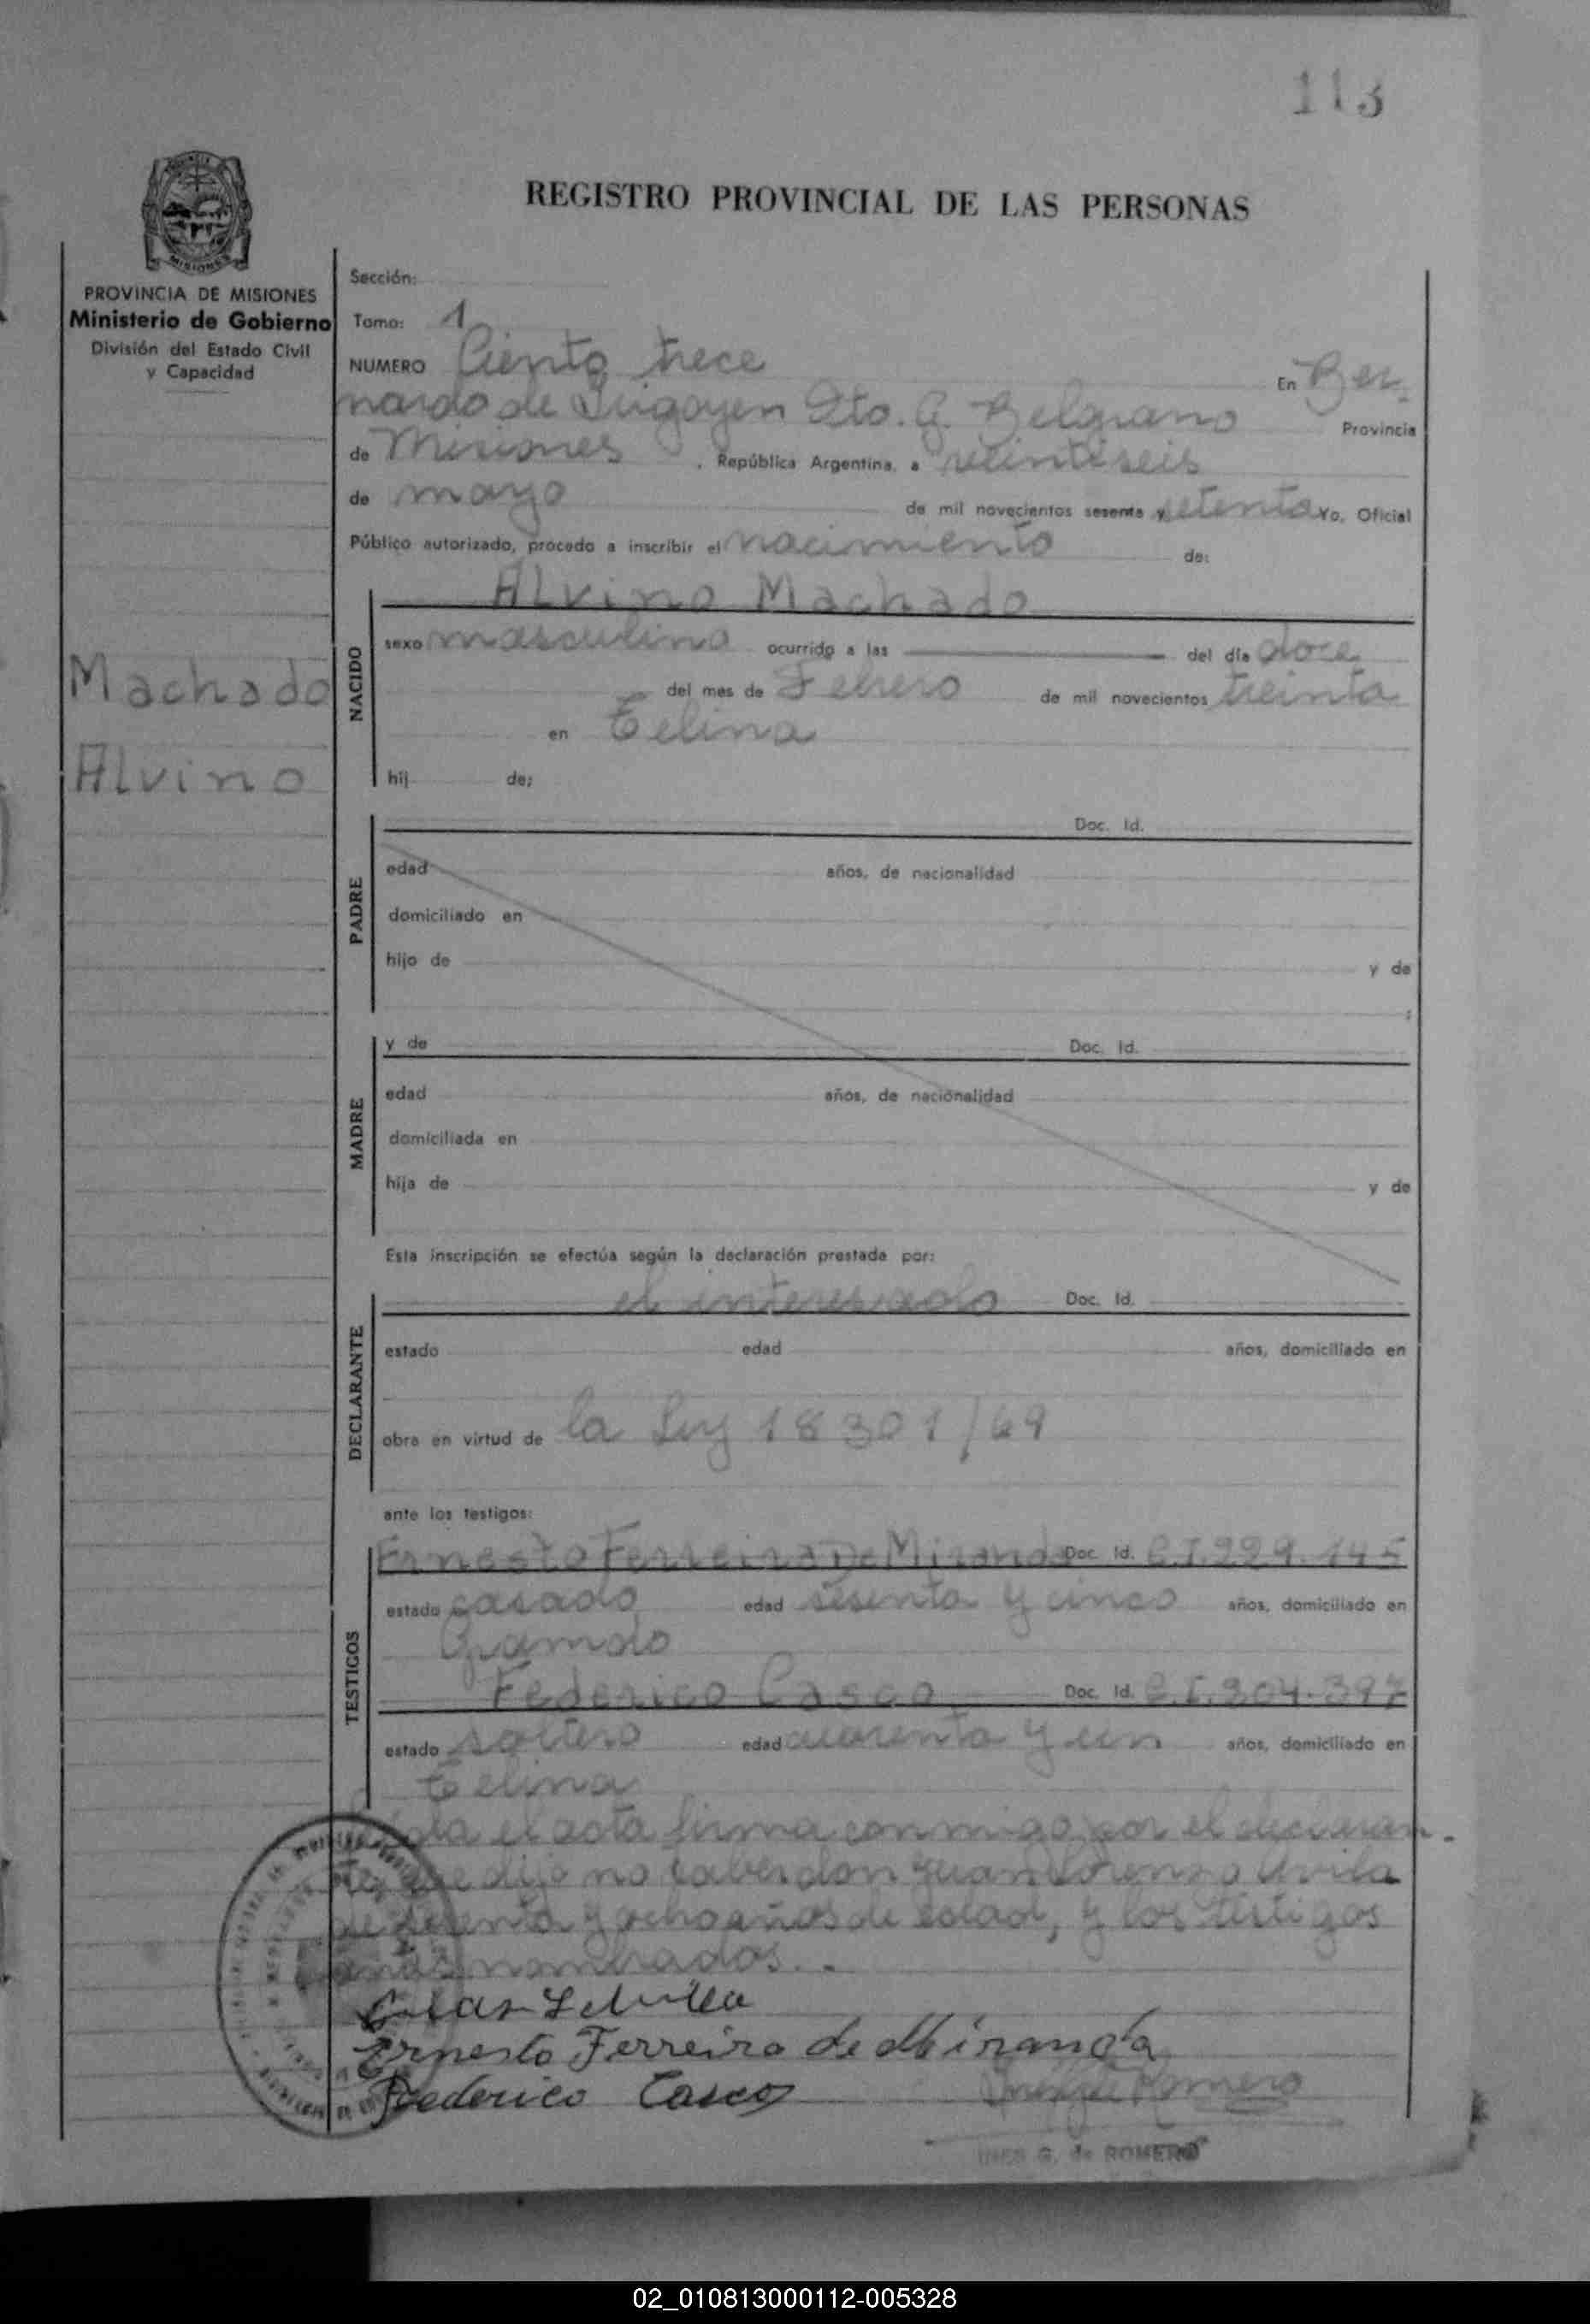 113
REGISTRO PROVINCIAL DE LAS PERSONAS
MISIONES
PROVINCIA DE MISIONES
Ministerio de Gobierno
División del Estado Civil
y Capacidad
Machado
Alvino
Sección:
Tomo: 1
NUMERO Ciento trece En Ber-
nardo de Irigoyen Dto. G. Belgrano Provincia
de Misiones, República Argentina, a veintiseis
de mayo de mil novecientos sesenta y setenta Yo, Oficial
Público autorizado, procedo a inscribir el nacimiento de:
NACIDO
Alvino Machado
sexo masculino ocurrido a las del día doce
del mes de Febrero de mil novecientos treinta
en Celina
hij de;
PADRE
Doc. Id.
edad años, de nacionalidad
domiciliado en
hijo de y de
;
MADRE
y de Doc. Id.
edad años, de nacionalidad
domiciliada en
hija de y de
Esta inscripción se efectúa según la declaración prestada por:
DECLARANTE
el interesado Doc. Id.
estado edad años, domiciliado en
obra en virtud de la Ley 18301/69
ante los testigos:
TESTIGOS
Ernesto Ferreira De Miranda Doc. Id. C.I.229.145
estado casado edad sesenta y cinco años, domiciliado en
Gramado
Federico Casco Doc. Id. C.I.304.397
estado soltero edad cuarenta y un años, domiciliado en
Celina
el acta firma conmigo por el declaran-
te que dijo no saber don Juan Lorenzo Avila
de y ocho años de edad, y los testigos
nombrados.-
Ernesto Ferreira de Miranda
Federico Casco
Romero
INES G. de ROMERO
02_010813000112-005328